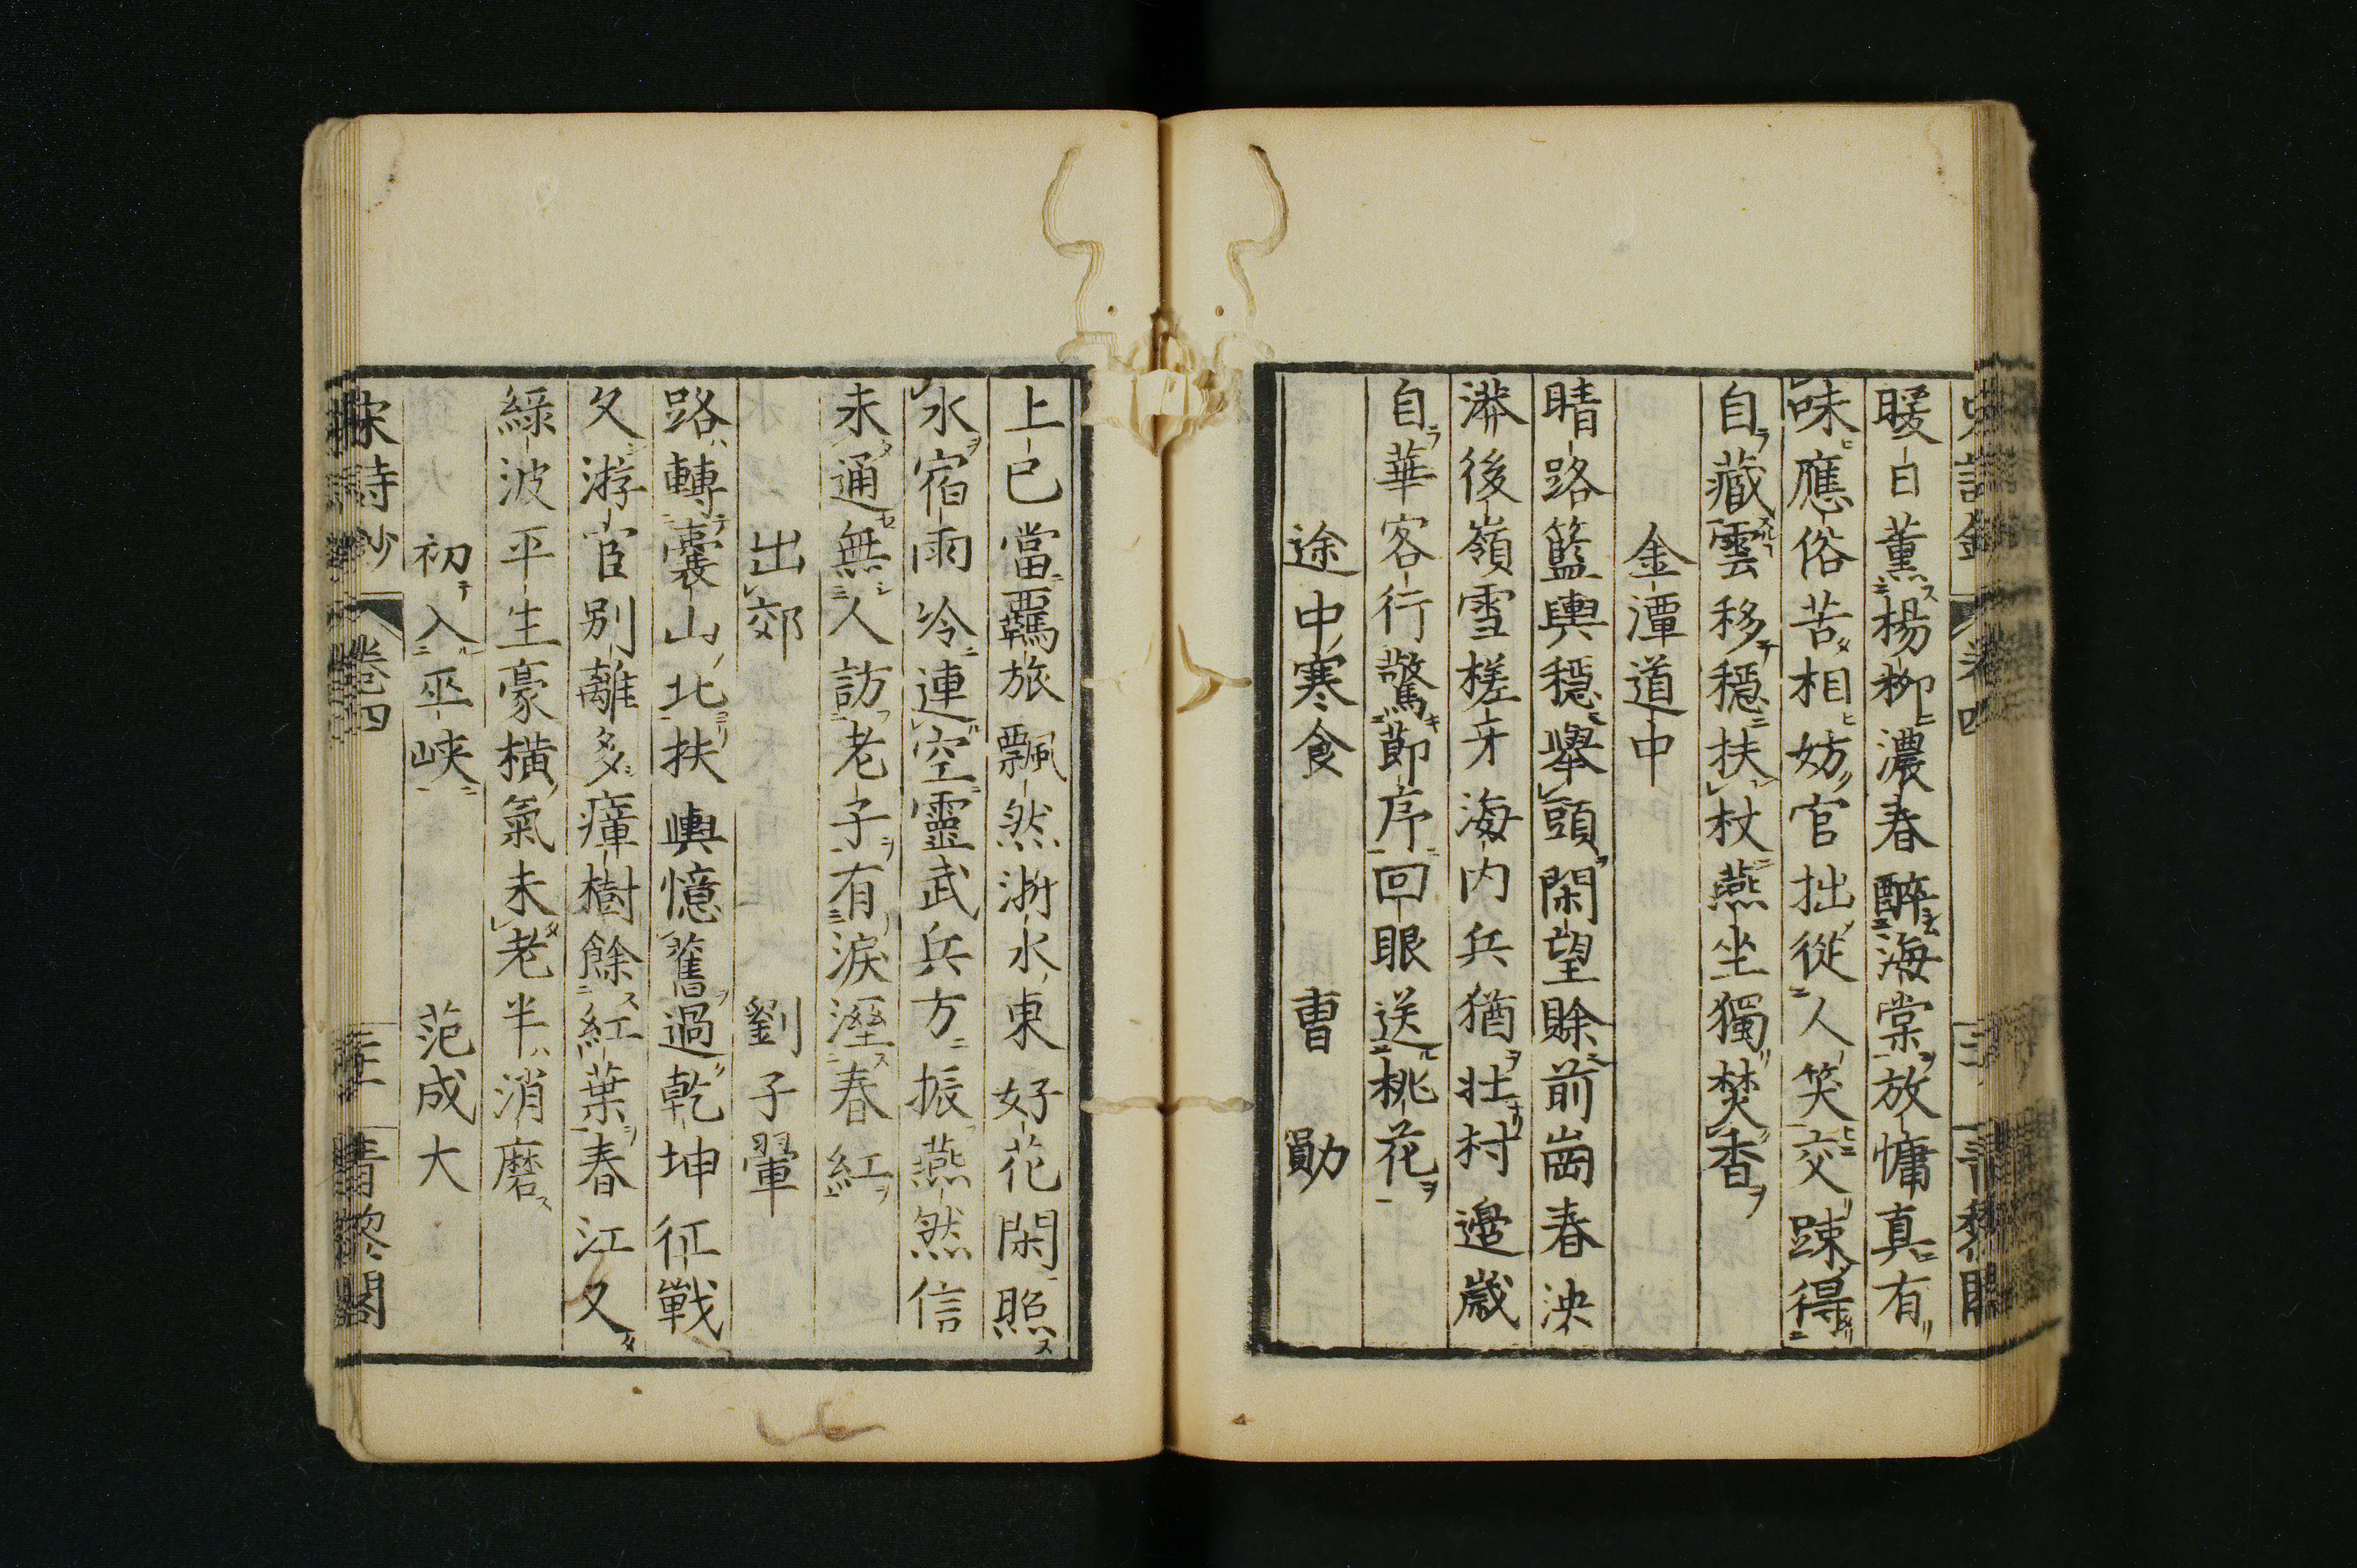 暖日薫楊柳濃春醉海棠放慵真有
味應俗苦相妨官拙從人笑交踈得
自藏雲移穩扶杖燕坐獨焚香
金潭道中
晴路籃輿穩舉頭閑望賖前崗春泱
漭後嶺雪槎牙海内兵猶壯村邊歲
自華客行驚節序回眼送桃花
途中寒食 曹勛
上巳當羈旅飄然浙水東好花閑照
水宿雨冷連空靈武兵方振燕然信
未通無人訪老子有淚溼春紅
出郊 劉子翬
路轉囊山北扶輿憶舊過乾坤征戰
久游宦別離多瘴樹餘紅葉春江又
綠波平生豪橫氣未老半消磨
初入巫峽 范成大
宋詩鈔 卷四 青黎閣